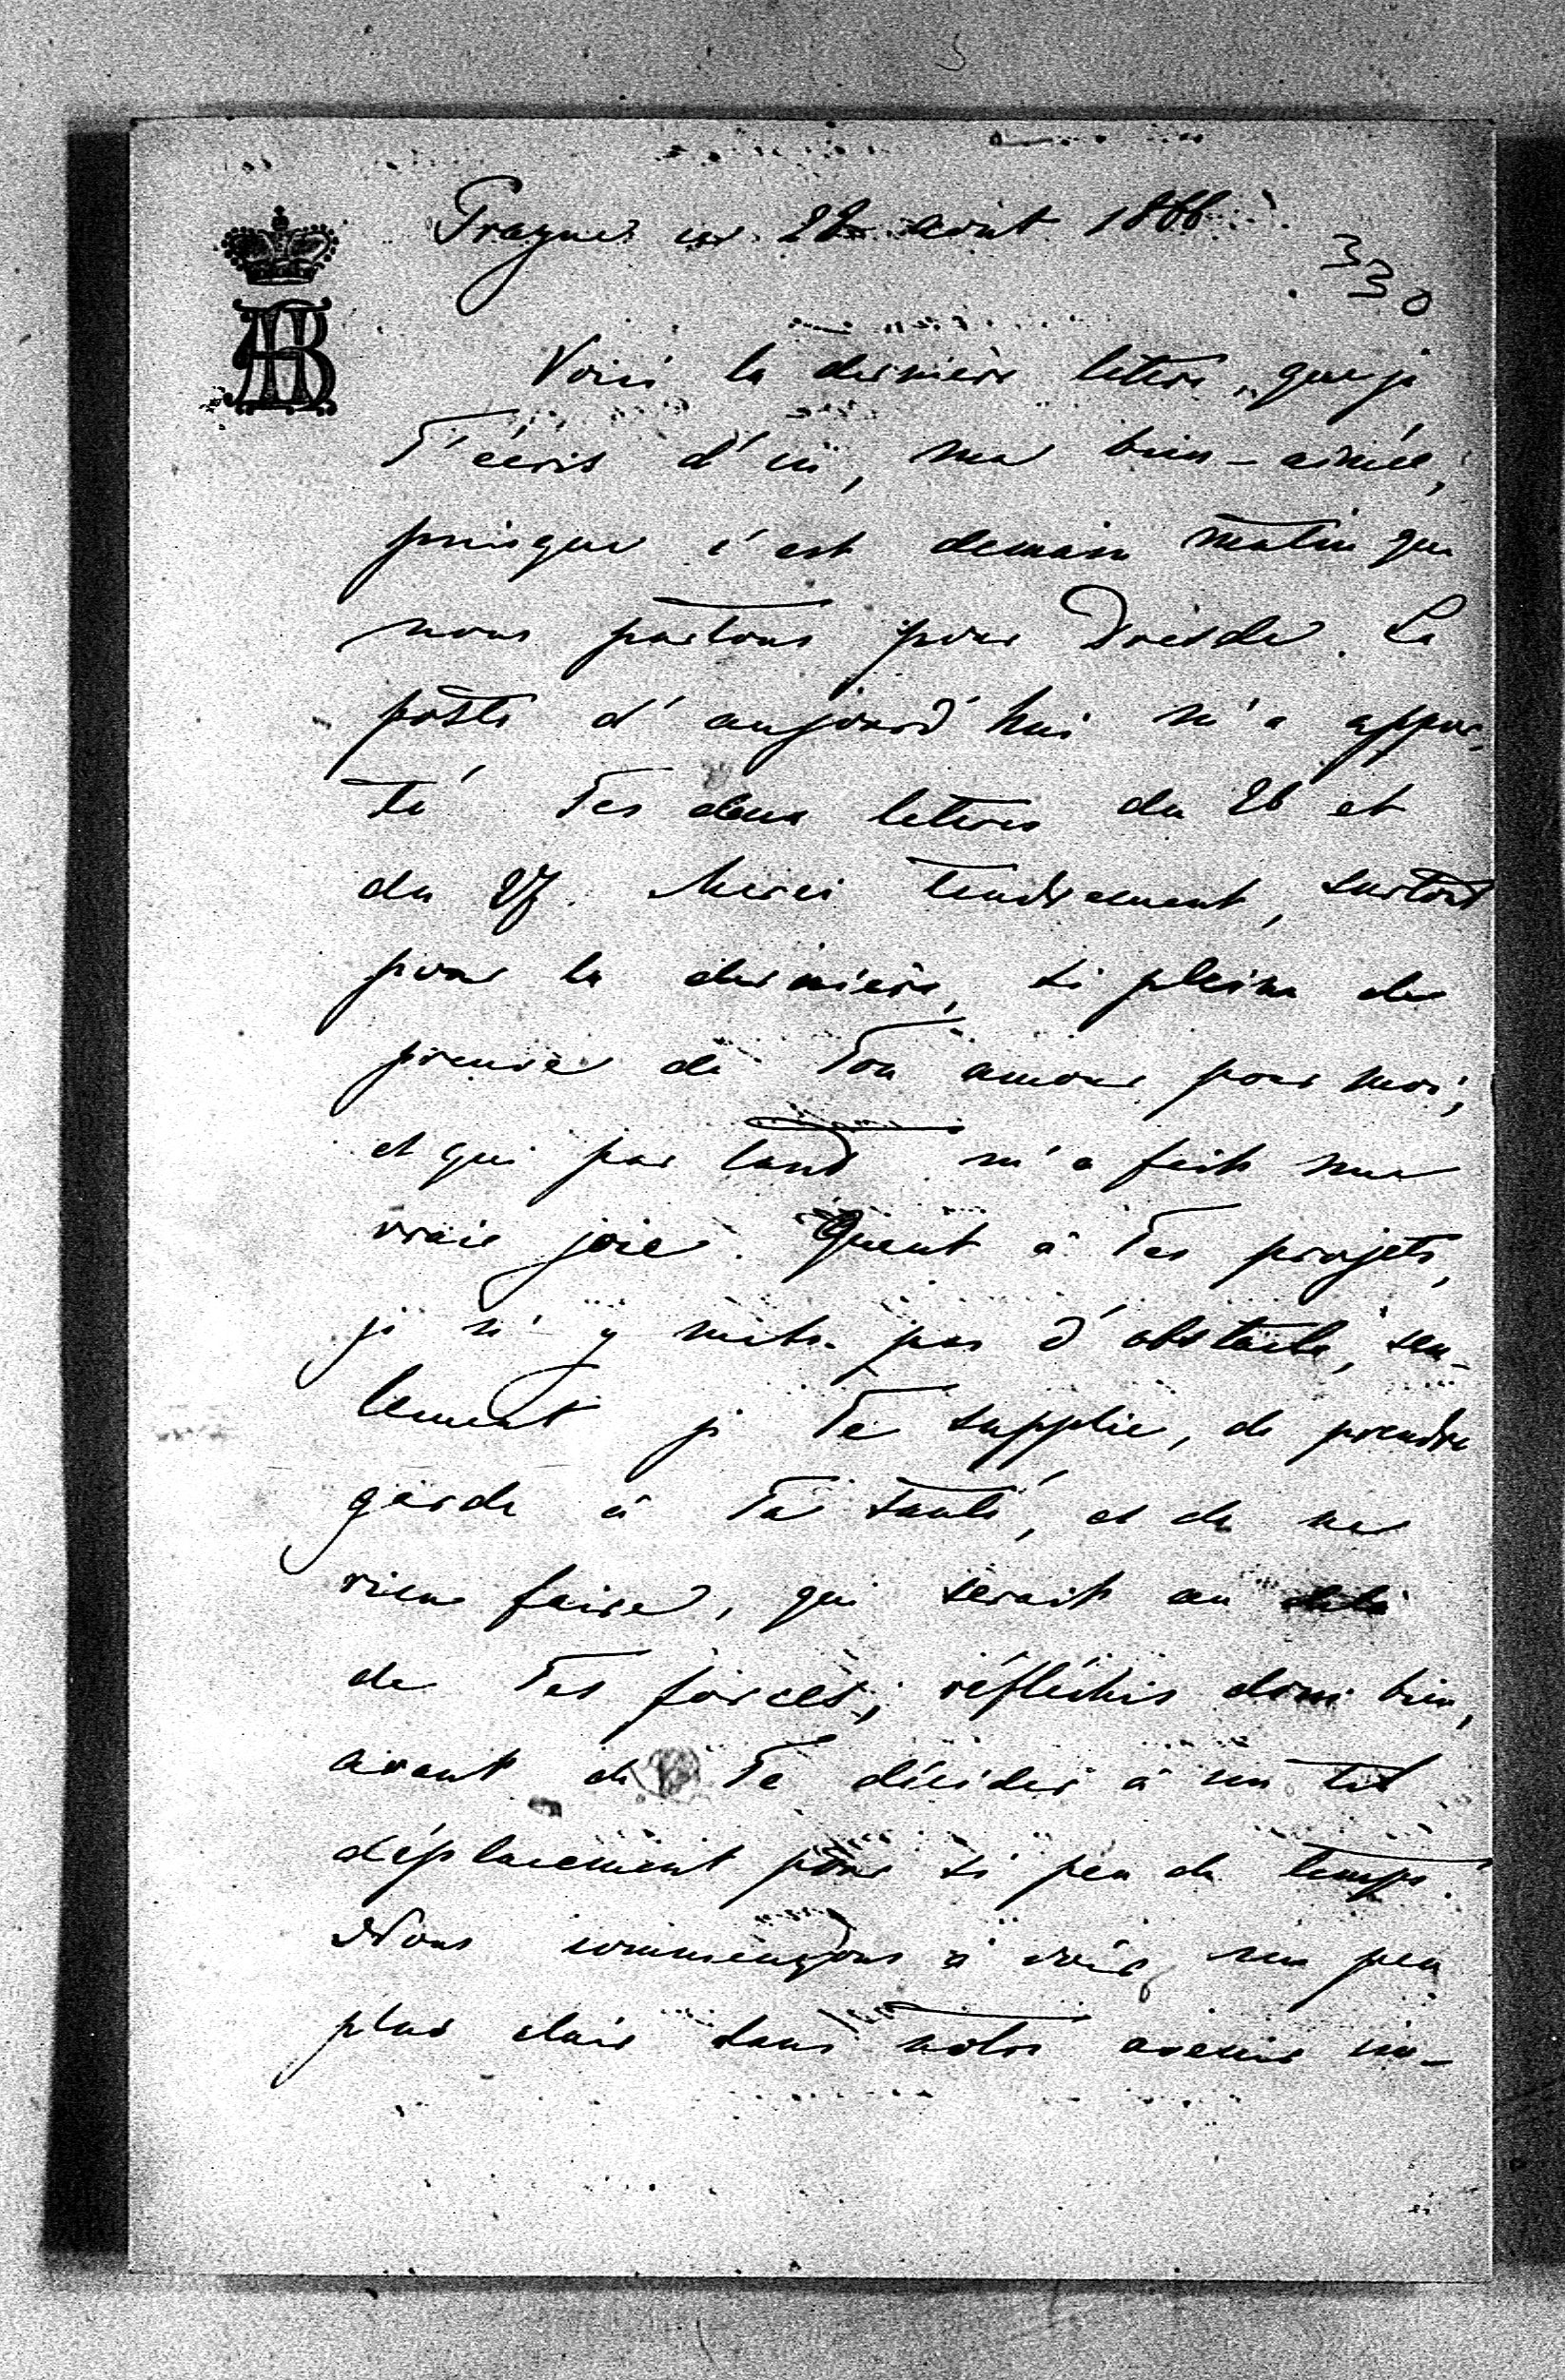 Prague ce 28 août 1866.
330
Voici la dernière lettre, que je
T'écris d'ici, ma bien-aimée,
puisque c'est demain matin que
nous partons pour Dresde. La
poste d'aujourd'hui m'a appor-
té Tes deux lettres du 26 et
du 27. Merci tendrement, surtout
pour la dernière, si pleine de
preuve de Ton amour pour moi,
et qui par tant m'a fait une
vraie joie. Quant à Tes projets,
je n'y mets pas d'obstacle, seu-
lement je Te supplie, de prendre
garde à Ta santé, et de ne
rien faire, qui serait au delà
de Tes forces; réfléchis donc bien,
avant de Te décider à un tel
déplacement pour si peu de temps.
Nous commençons à voir un peu
plus clair dans notre avenir im-